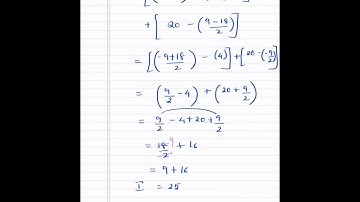 + [ 20 - ( 9-18 / 2 ) ]
= [ ( -9+18 / 2 ) - (4) ] + [ 20 - ( -9 / 2 ) ]
= ( 9/2 - 4 ) + ( 20 + 9/2 )
= 9/2 - 4 + 20 + 9/2
= 18/2 9 + 16
= 9 + 16
I = 25